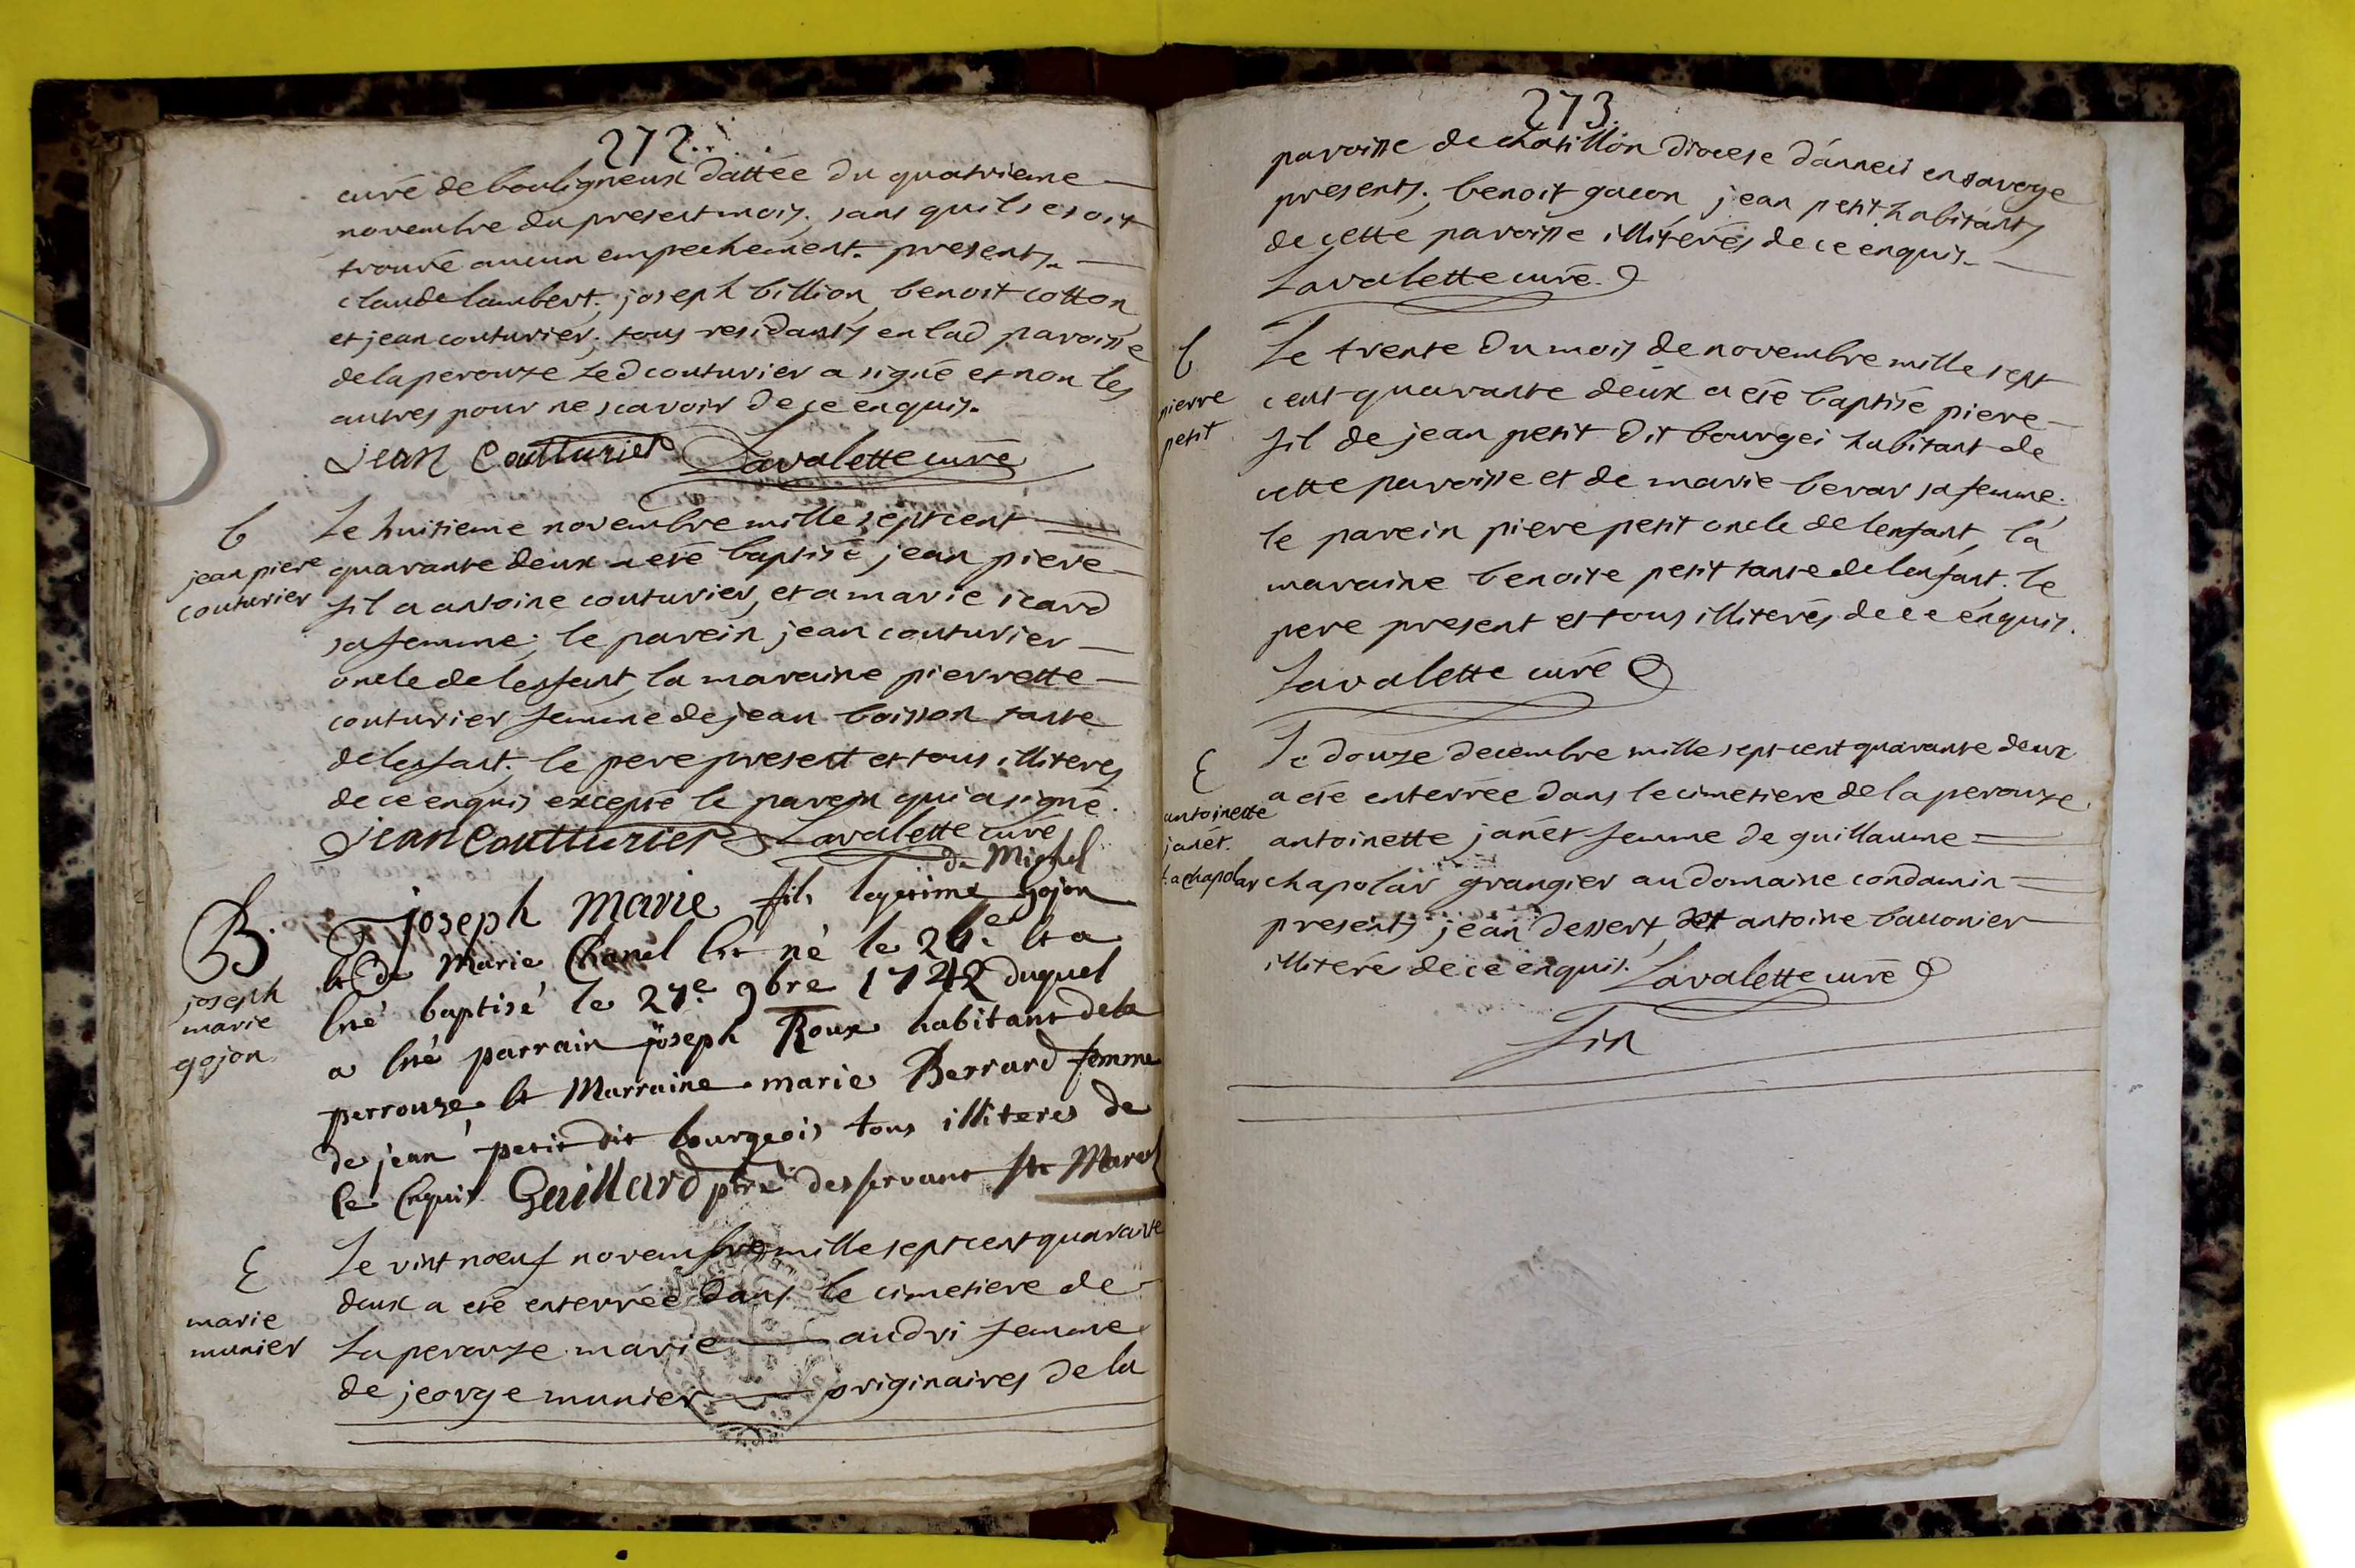 272.
curé de bouligneux dattée du quatrieme
novembre du present mois. sans quil se soit
trouvé aucun empechement. presents
claude lambert, joseph billion, benoit cotton
et jean couturier, tous residants en lad paroisse
de la perouze led couturier a signé et non les
autres pour ne scavoir de ce enquis.
jean Coutturier Lavalette curé
b
jean piere
couturier
Le huitieme novembre mille sept cent
quarante deux a eté baptisé jean piere
fil a antoine couturier, et a marie icard
sa femme; le parein jean couturier
oncle de lenfant, la maraine pierrette
couturier femme de jean boisson tante
de lenfant. le pere present et tous illiterés
de ce enquis excepté le parein qui a signé.
jean Coutturier Lavalette curé
B.
joseph
marie
gojon
de Michel
joseph marie fils legitime gojon
et de Marie Chanel est né le 26.e et a
eté baptisé le 27.e 9bre 1742 duquel
a eté parrain joseph Roux habitant de la
perrouze et Marraine marie Berrard femme
de jean petit dit bourgeois tous illiteres de
ce enquis Gaillard ptre desservant St Marcel
E
marie
munier
Le vint noeuf novembre mille sept cent quarante
deux a eté enterrée dans le cimetiere de
La perouze marie audri femme
de jeorge munier originaires de la
273.
paroisse de chatillon diocese d'anneci en savoye
presents, benoit gacon, jean petit habitants
de cette paroisse illiterés de ce enquis
Lavalette curé
b
pierre
petit
Le trente du mois de novembre mille sept
cent quarante deux a eté baptisé piere
fil de jean petit dit bourgei habitant de
cette paroisse et de marie berar sa femme.
le parein piere petit oncle de lenfant, la
maraine benoite petit tante de lenfant. le
pere present et tous illiterés de ce enquis.
Lavalette curé
E
antoinette
janét.
f. a chapolar
Le douze decembre mille sept cent quarante deux
a eté enterrée dans le cimetiere de la perouze
antoinette janét femme de guillaume
chapolar grangier au domaine condamin
presents jean dessert, et antoine bauonier
illiteré de ce enquis. Lavalette curé
Fin